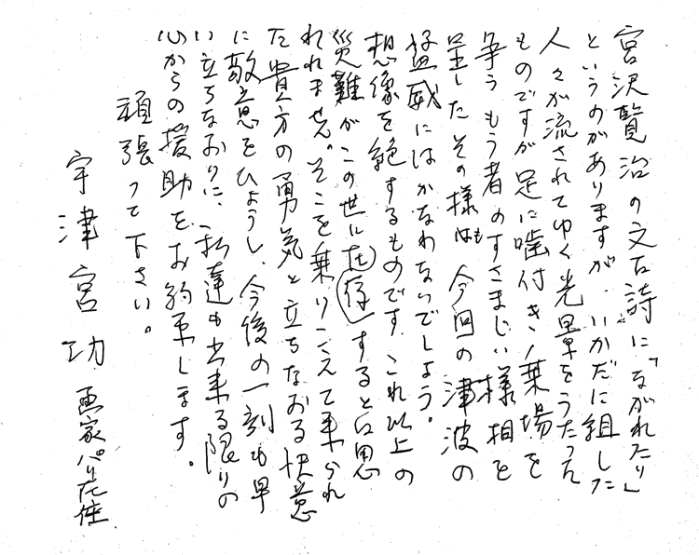 宮沢賢治の文古詩に「ながれたり」
というのがありますが、いかだに組した
人々が流されてゆく光景をうたった
ものですが足に噛付き、乗場を
争うもう者のすさまじい様相を
呈したその様はも今回の津波の
猛威にはかなわないでしょう。
想像を絶するものです。これ以上の
災難がこの世に在(存)するとは思
われません。そこを乗りこえて来られ
た貴方の勇気と立ちなおる決意
に敬意をひょうし、今後の一刻も早
い立ちなおりに、私達も出来る限りの
心からの援助をお約束します。
頑張って下さい。
宇津宮功 画家パリ在住